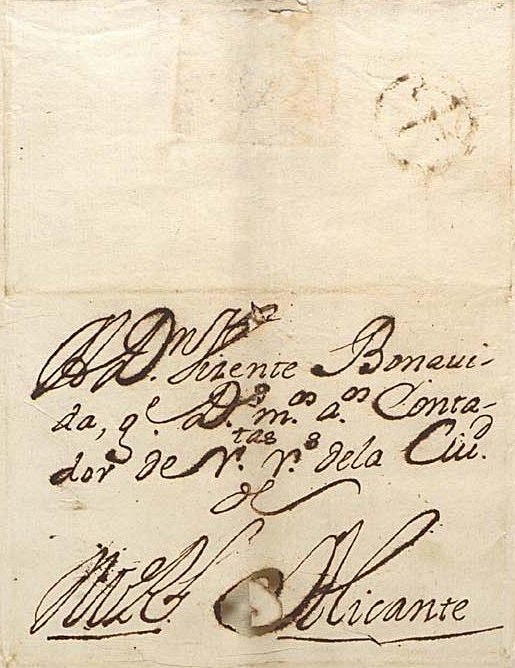 A Dn Vizente Bonaui-
da, q.e D.s m.os a.os Conta-
dor de r.tas r.s dela Ciud.
de
Alicante